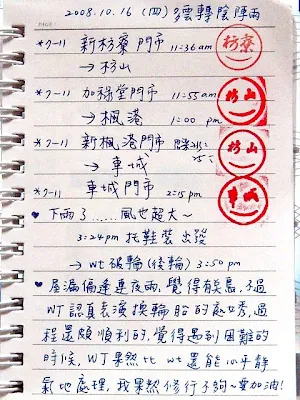 2008.10.16 (四) 多雲轉陰陣雨
*7-11 新枋寮門市 11:36am 枋寮
→枋山
*7-11 加祿堂門市 11:55am 枋山
→楓港 1:00 pm
*7-11 新楓港門市 枋山
→車城
*7-11 車城門市 2:15pm 車城
♥ 下雨了......風也超大~
3:24pm 托鞋裝出發
→ wt破輪(後輪) 3:50 pm
♥ 屋漏偏逢連夜雨,覺得有點,不過
WJ認真表演換輪胎的處女秀,過
程還頗順利的,覺得遇到困難的
時候,WJ果然比wt還能心平靜
氣地處理,我果然修行不夠~要加油!